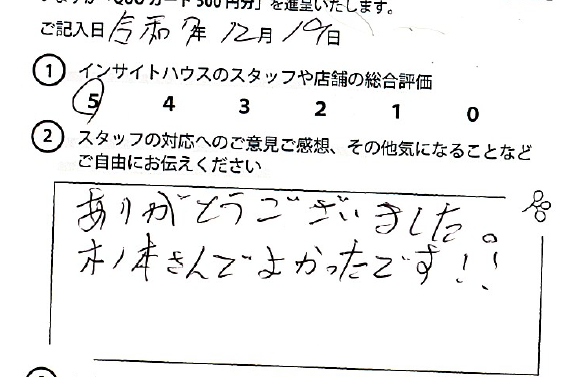 「QUOカード500円分」を進呈いたします。
ご記入日 令和7年12月19日
① インサイトハウスのスタッフや店舗の総合評価
5 4 3 2 1 0
② スタッフの対応へのご意見ご感想、その他気になることなど
ご自由にお伝えください
ありがとうございました。
木ノ本さんでよかったです!!